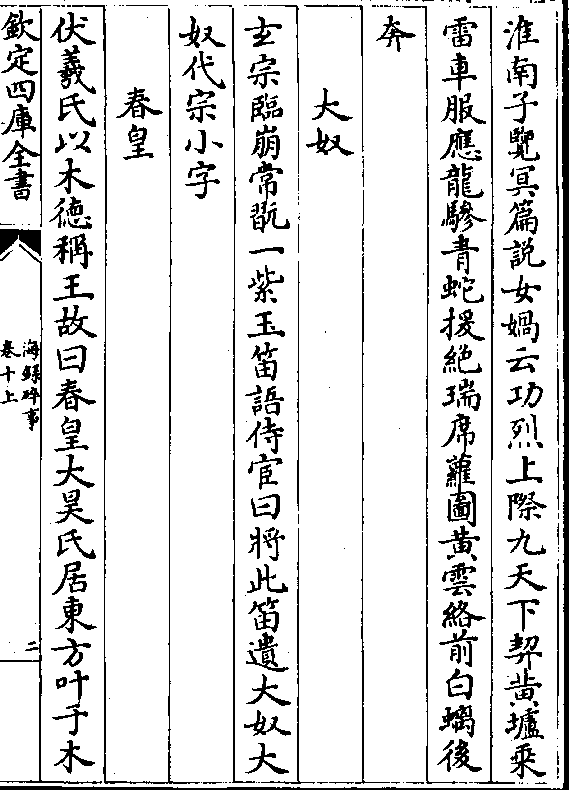 淮南子覽冥篇説女媧云功烈上際九天下契黄壚乘
雷車服應龍驂青蛇援絶瑞席蘿圖黄雲絡前白螭後
奔
大奴
玄宗臨崩常翫一紫玉笛語侍宦曰將此笛遺大奴大
奴代宗小字
春皇
伏羲氏以木徳稱王故曰春皇大昊氏居東方叶于木
欽定四庫全書
海録碎事
卷十上
二